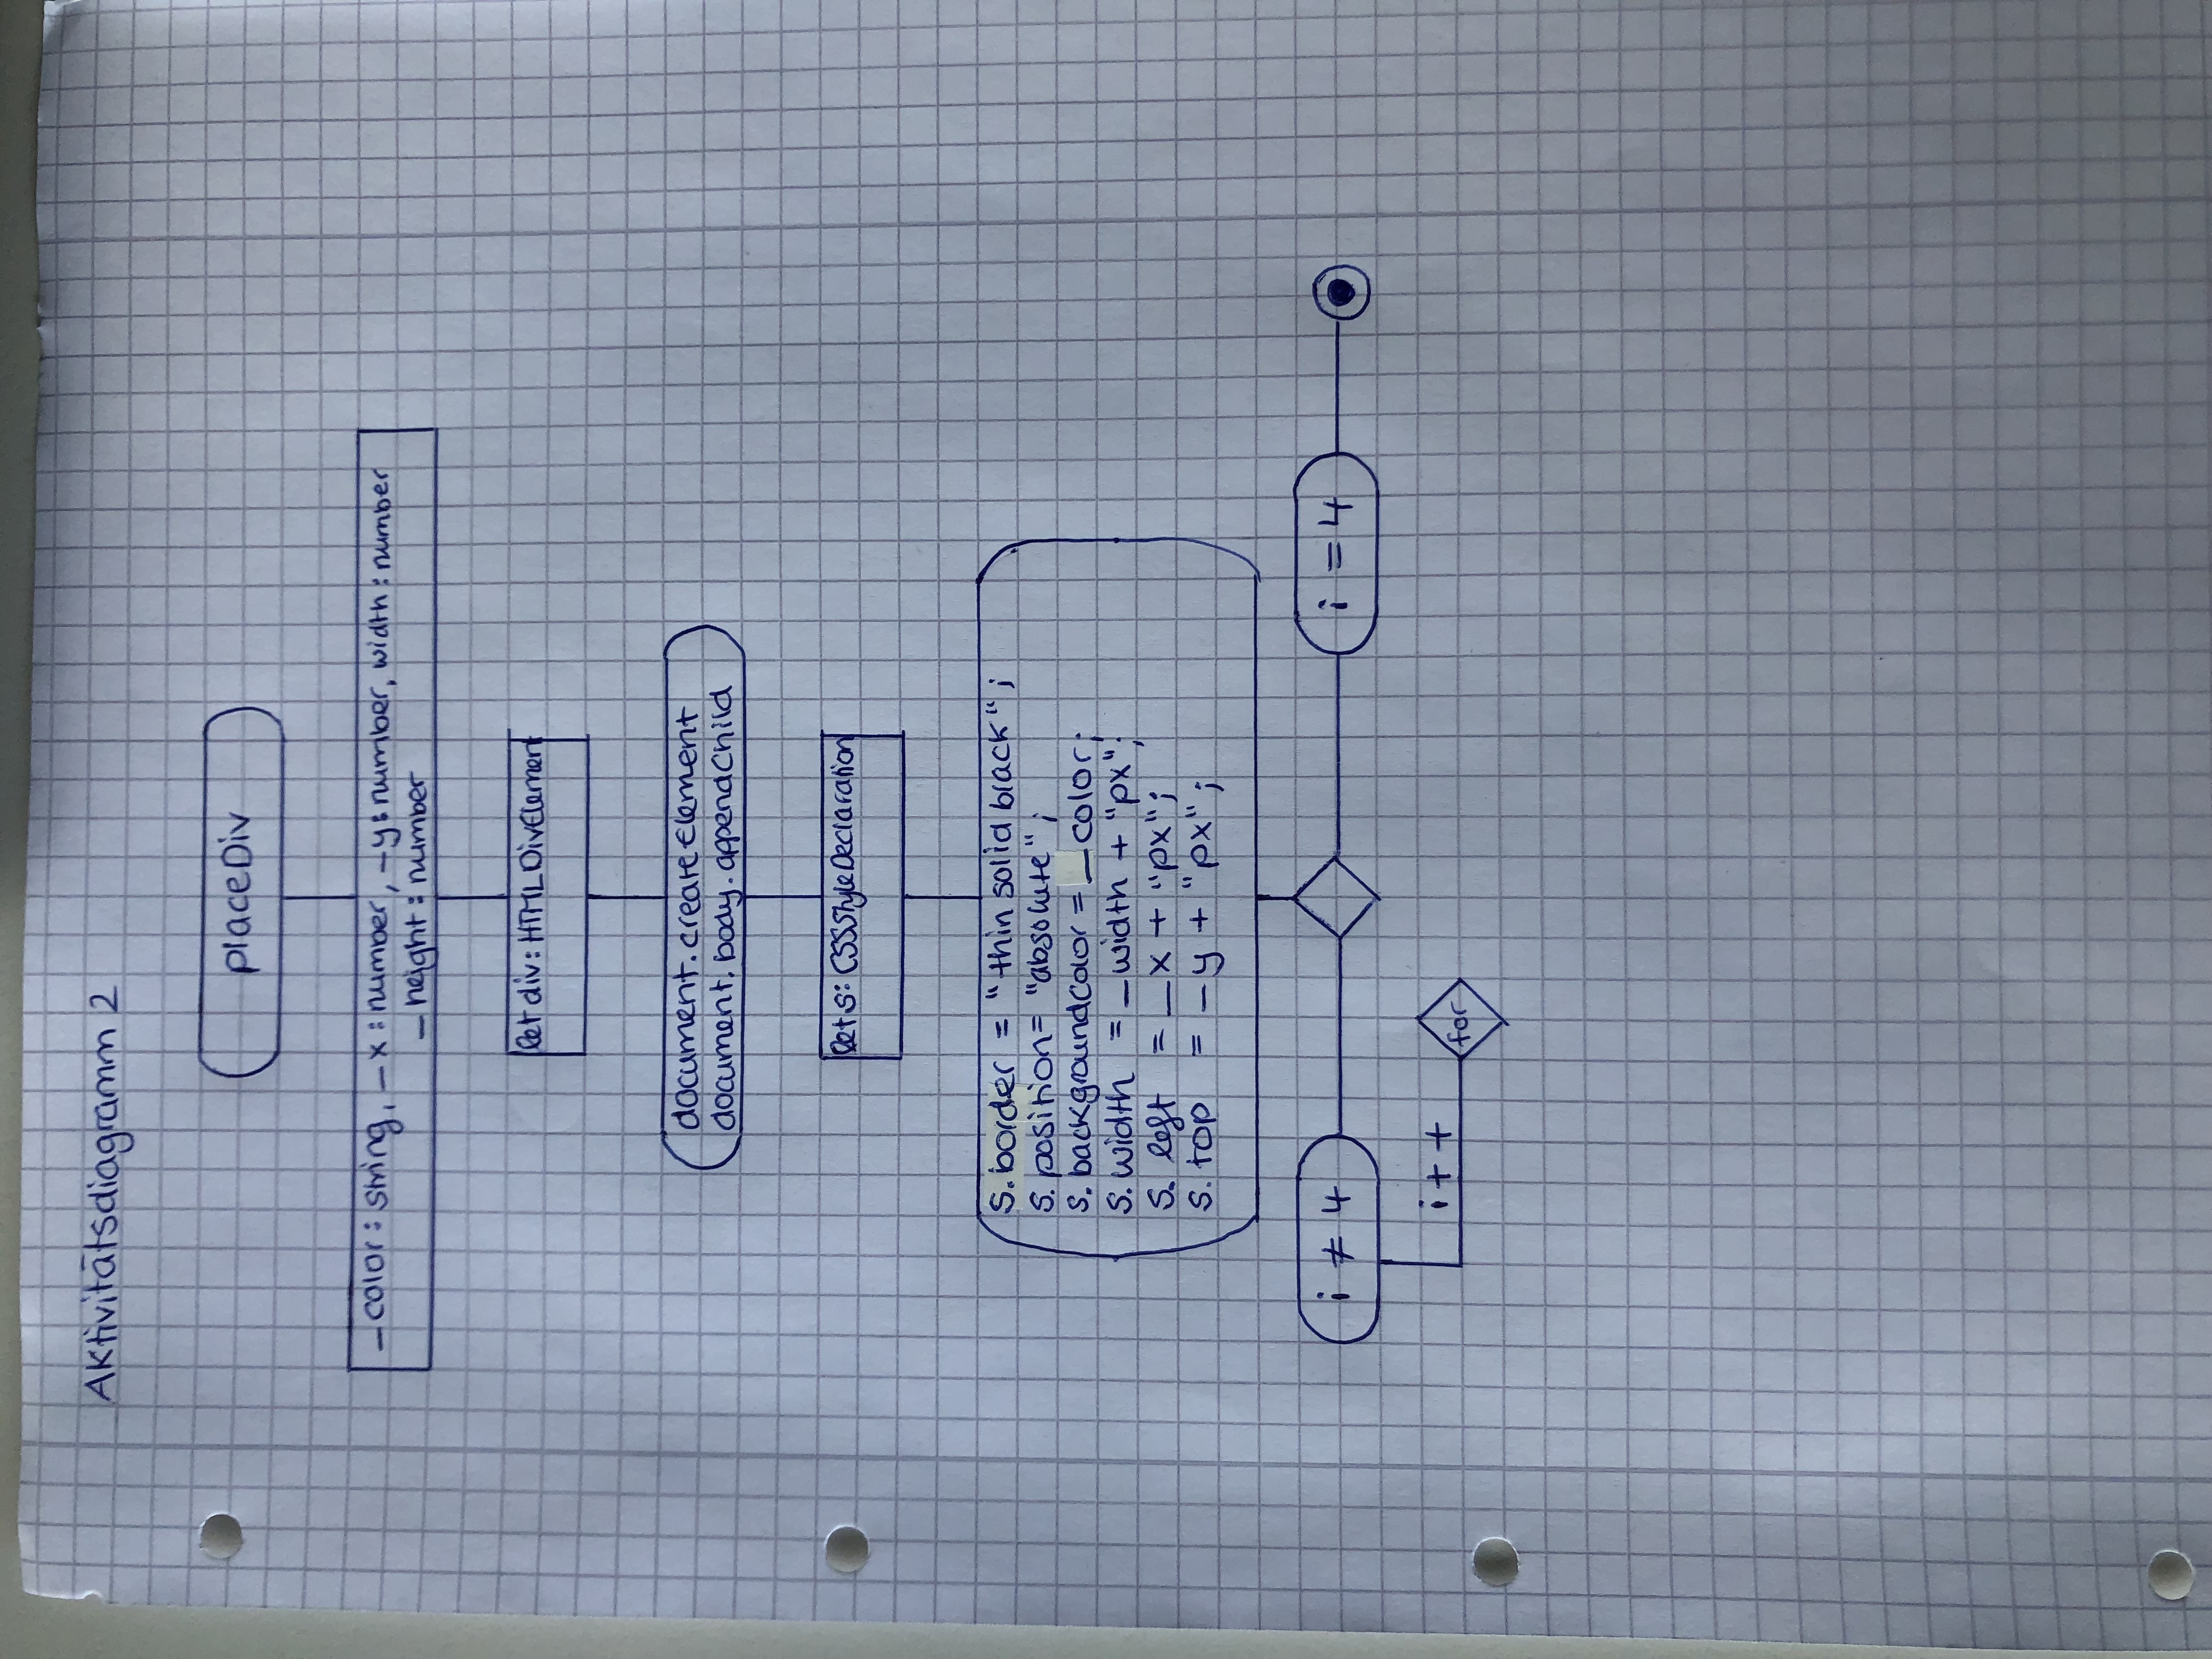 Aktivitätsdiagramm 2
placeDiv
_color: string, _x: number, _y: number, width: number
_height: number
let div: HTMLDivElement
document.createElement
document.body.appendChild
let s: CSSStyleDeclaration
s.border = "thin solid black";
s.position = "absolute";
s.backgroundcolor = _color;
s.width = _width + "px";
s.left = _x + "px";
s.top = _y + "px";
i ≠ 4
i = 4
i++
for